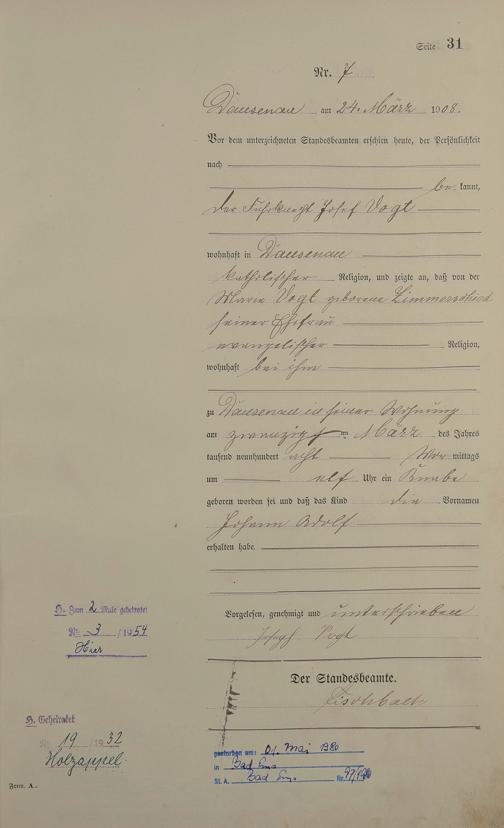 Seite 31
Nr. 7
Dausenau am 24. März 1908.
Vor dem unterzeichneten Standesbeamten erschien heute, der Persönlichkeit
nach
be kannt,
der Fuhrknecht Josef Vogt
wohnhaft in Dausenau
katholischer Religion, und zeigte an, daß von der
Marie Vogt geborene Zimmerschied
seiner Ehefrau
evangelischer Religion,
wohnhaft bei ihm
zu Dausenau in seiner Wohnung
am zwanzigsten März des Jahres
tausend neunhundert acht Vor mittags
um elf Uhr ein Knabe
geboren worden sei und daß das Kind die Vornamen
Johann Adolf
erhalten habe.
Vorgelesen, genehmigt und unterschrieben
Joseph Vogt
Der Standesbeamte.
Zum 2 Male geheiratet
Nr. 3 / 1954
Hier
Geheiratet
Nr. 19 / 1932
Holzappel
gestorben am: 01. Mai 1980
in Bad Ems
St. A. Bad Ems Nr.
Form. A.